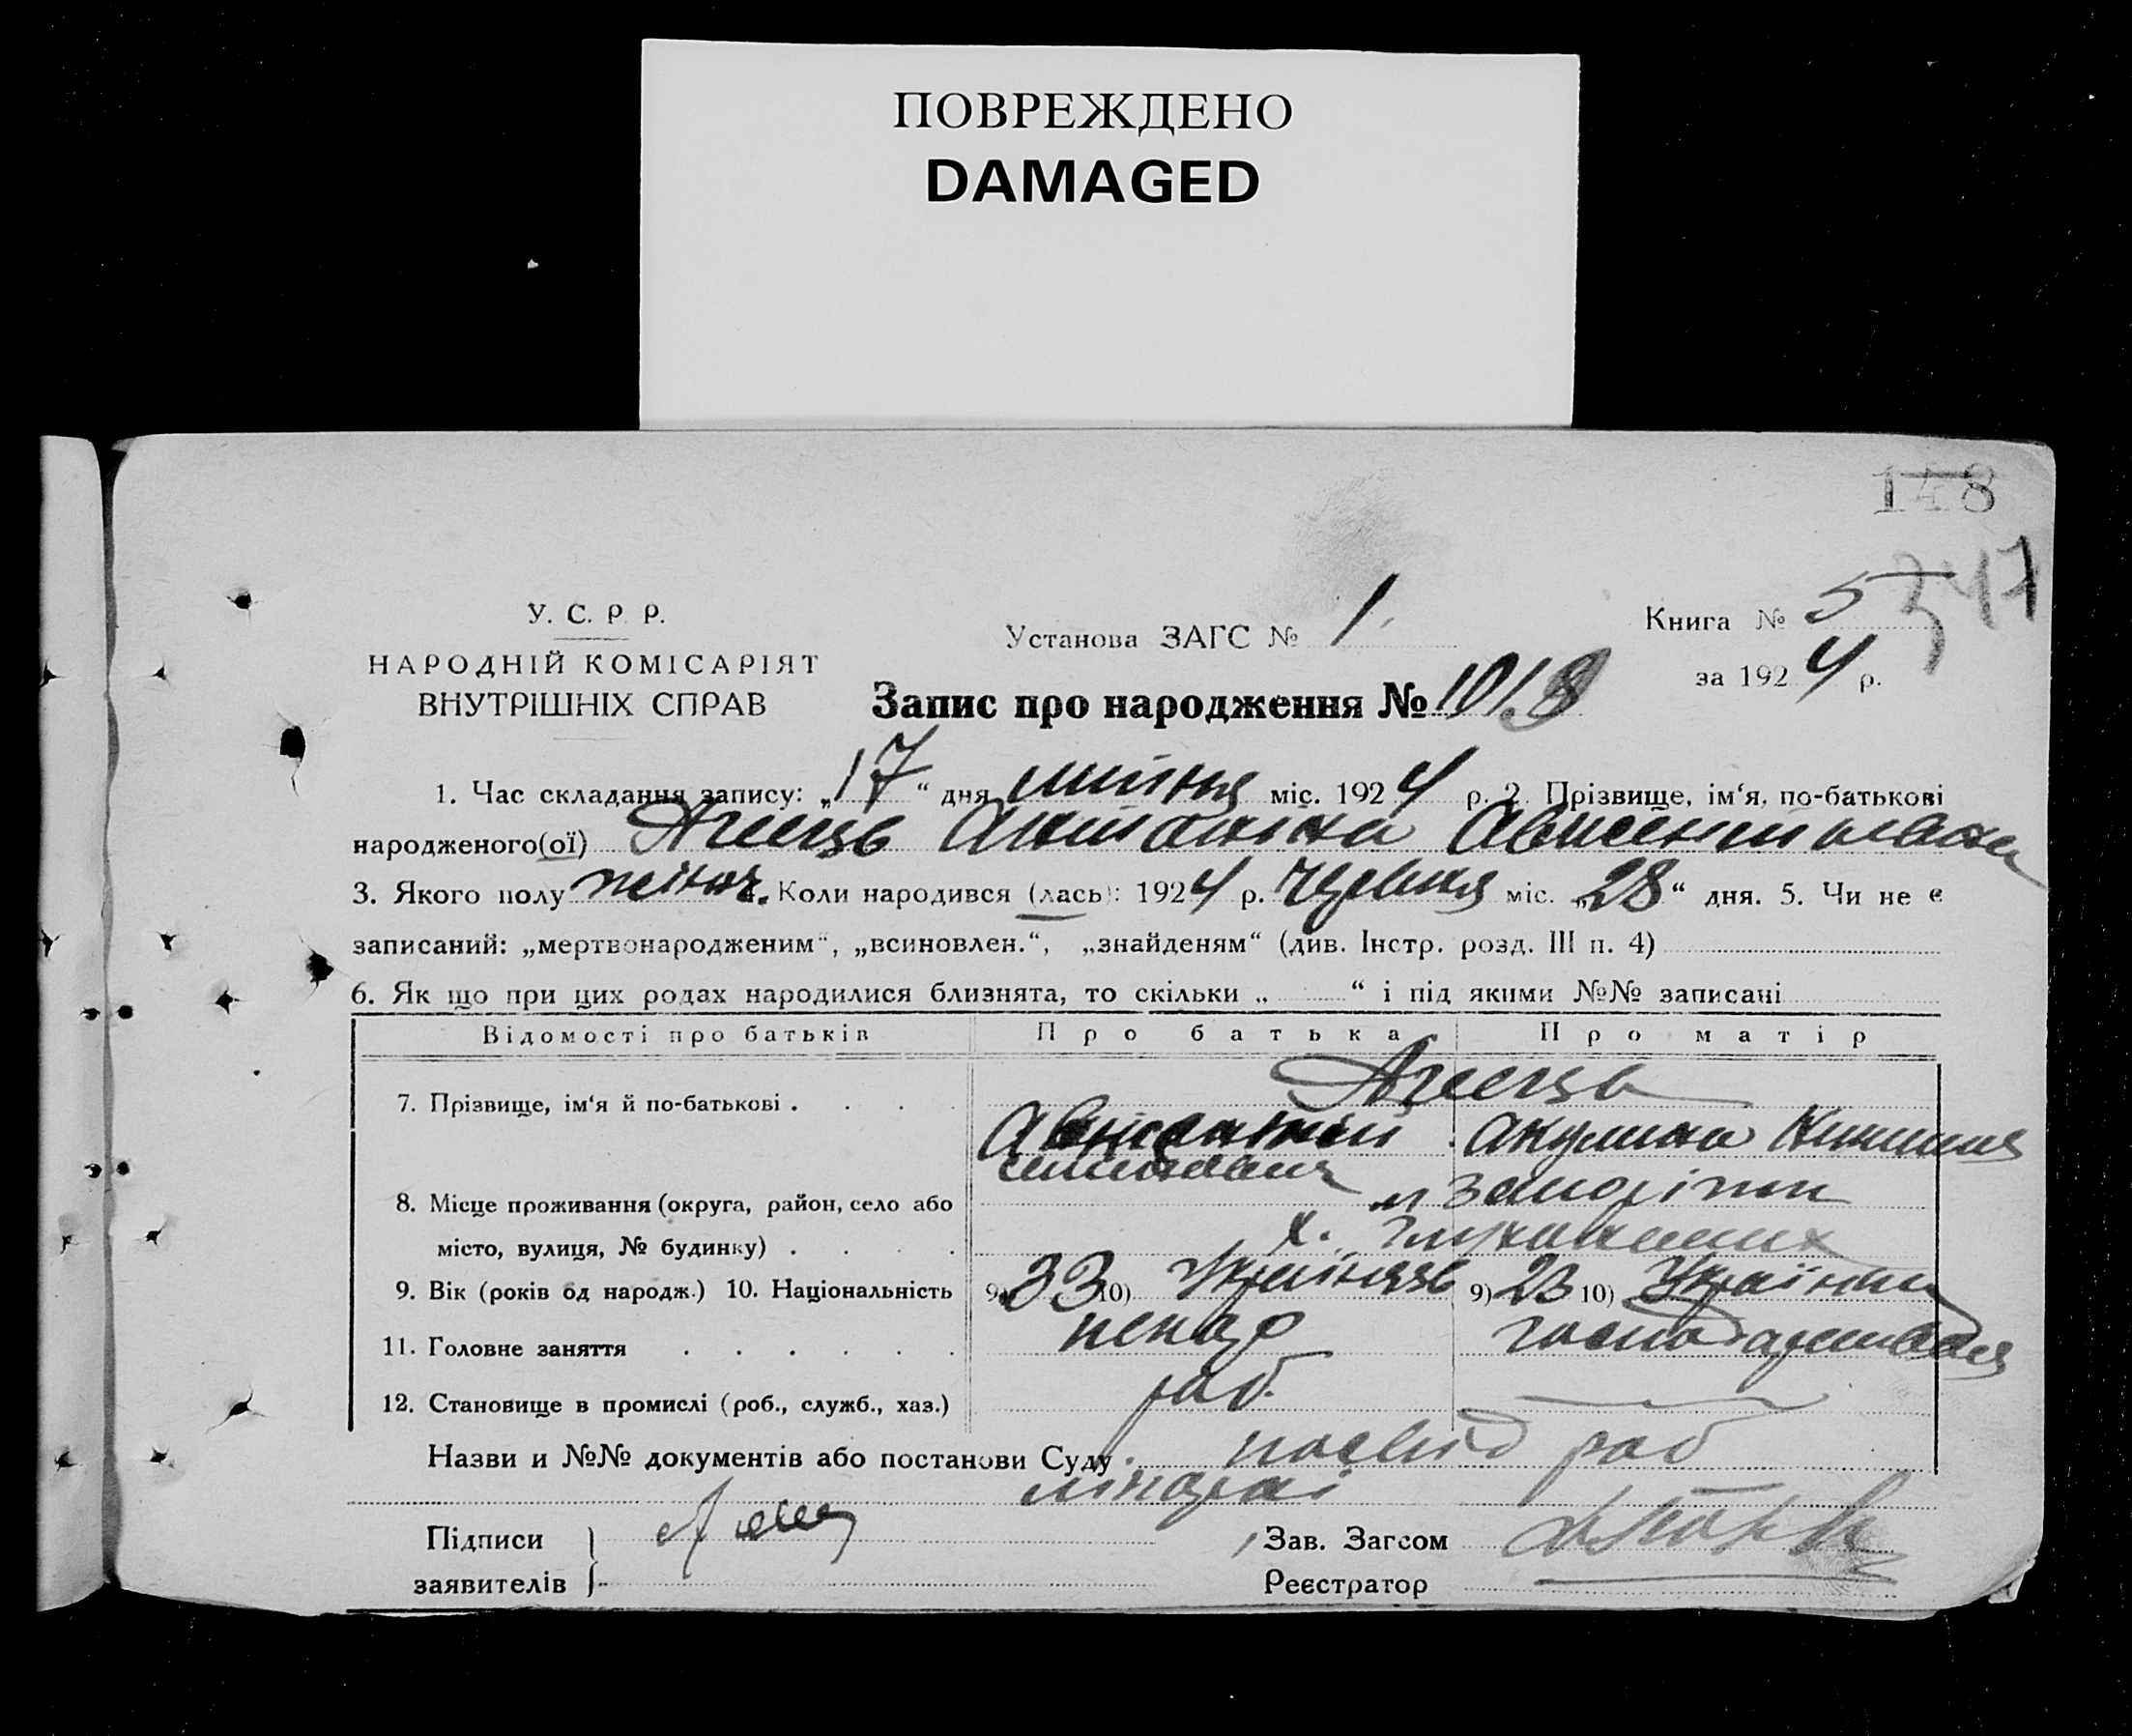 ПОВРЕЖДЕНО
DAMAGED
148
У. С. Р. Р.
НАРОДНІЙ КОМІСАРІЯТ
ВНУТРІШНІХ СПРАВ
Установа ЗАГС № 1.
Книга № 5
за 1924 р.
Запис про народження № 1018
1. Час складання запису: „17“ дня липня міс. 1924 р. 2. Прізвище, ім‘я, по-батькові
народженого(ої) Агеець Антоніна
3. Якого полу жіноч. 4. Коли народився (лась): 1924 р. червня міс. „28“ дня. 5. Чи не є
записаний: „мертвонародженим“, „всиновлен.“, „знайденям“ (див. Інстр. розд. III п. 4)
6. Як що при цих родах народилися близнята, то скільки „ “ і під якими №№ записані
Відомості про батьків Про батька Про матір
7. Прізвище, ім‘я й по-батькові . . . . Агеець
Акулина
8. Місце проживання (округа, район, село або м Запоріжжя
місто, вулиця, № будинку) . . . . х.
9. Вік (років од народж.) 10. Національність 9) 33 10) Українець 9) 23 10) Українка
11. Головне заняття . . . . . .
12. Становище в промислі (роб., служб., хаз.) роб.
Назви и №№ документів або постанови Суду посвід роб
Підписи
заявителів
Зав. Загсом
Реєстратор